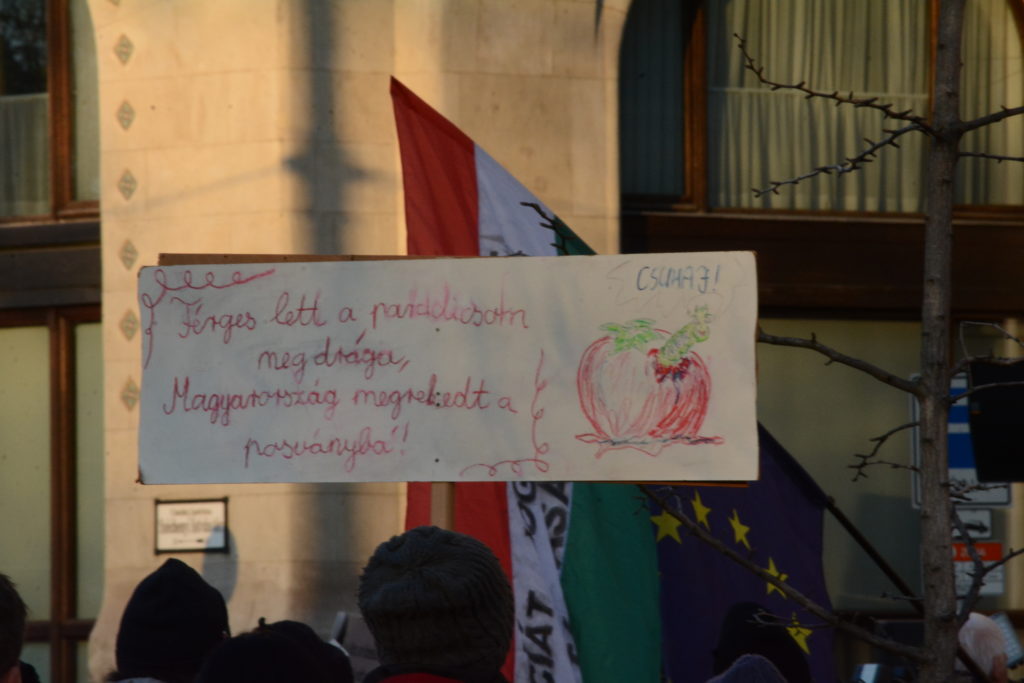 CSUMAJ!
Férges lett a paradicsom
meg drága,
Magyarország megrekedt a
posványba!
CIÁT